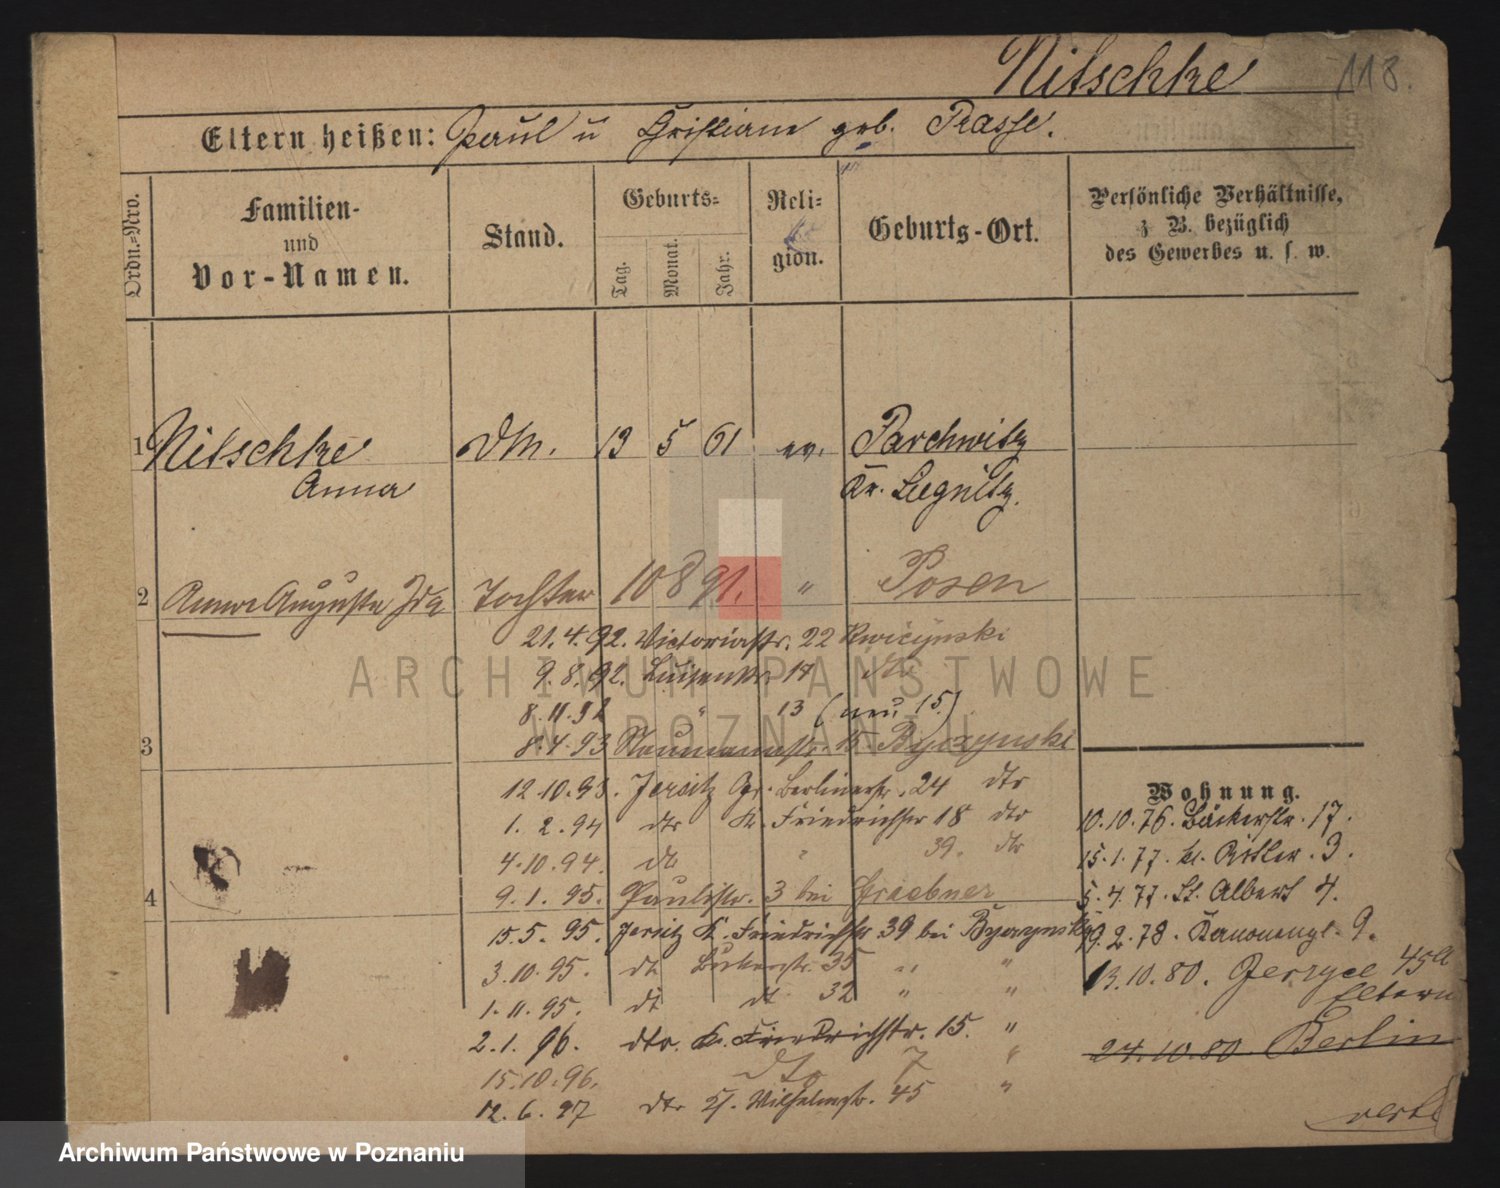 Nitschke 118.
Eltern heißen: Paul u Christiane geb. Prasse.
Ordn.=Nro.
Familien-
und
Vor-Namen.
Stand.
Geburts=
Tag.
Monat.
Jahr.
Reli=
gion.
Geburts-Ort.
Persönliche Verhältnisse,
z B. bezüglich
des Gewerbes u. s. w.
1 Nitschke DM. 13 5 61 ev. Parchwitz
Anna Kr. Liegnitz.
2 Anna Auguste Ida Tochter 10 8 91. " Posen
21.4.92. Victoriastr. 22
9.8.92. Luisenstr. 17
8.11.92 " 13 (neu 15.)
3
8.4.93 Naumannstr. 15 Byczynski
12.10.93. Jersitz Gr. Berlinerstr. 24 dto
1.2.94 dto K. Friedrichstr 18 dto
4.10.94. dto " 39. dto
4
9.1.95. Paulistr. 3 bei Graebner
15.5.95. Jersitz K. Friedrichstr 39 bei Byczynski
3.10.95. dt 35 " "
1.11.95. dt dt 32 " "
2.1.96. dto. K. Friedrichstr. 15. "
15.10.96. dto 7 "
12.6.97 dto Wilhelmstr. 45 "
Wohnung.
10.10.76. Bäckerstr. 17.
15.1.77. kl. Ritter. 3.
5.4.77. St. Albert 4.
19.2.78. Kanonenpl. 9.
13.10.80. Jerzyce 45a
Eltern
24.10.80 Berlin
verte
ARCHIWUM PAŃSTWOWE
W POZNANIU
Archiwum Państwowe w Poznaniu